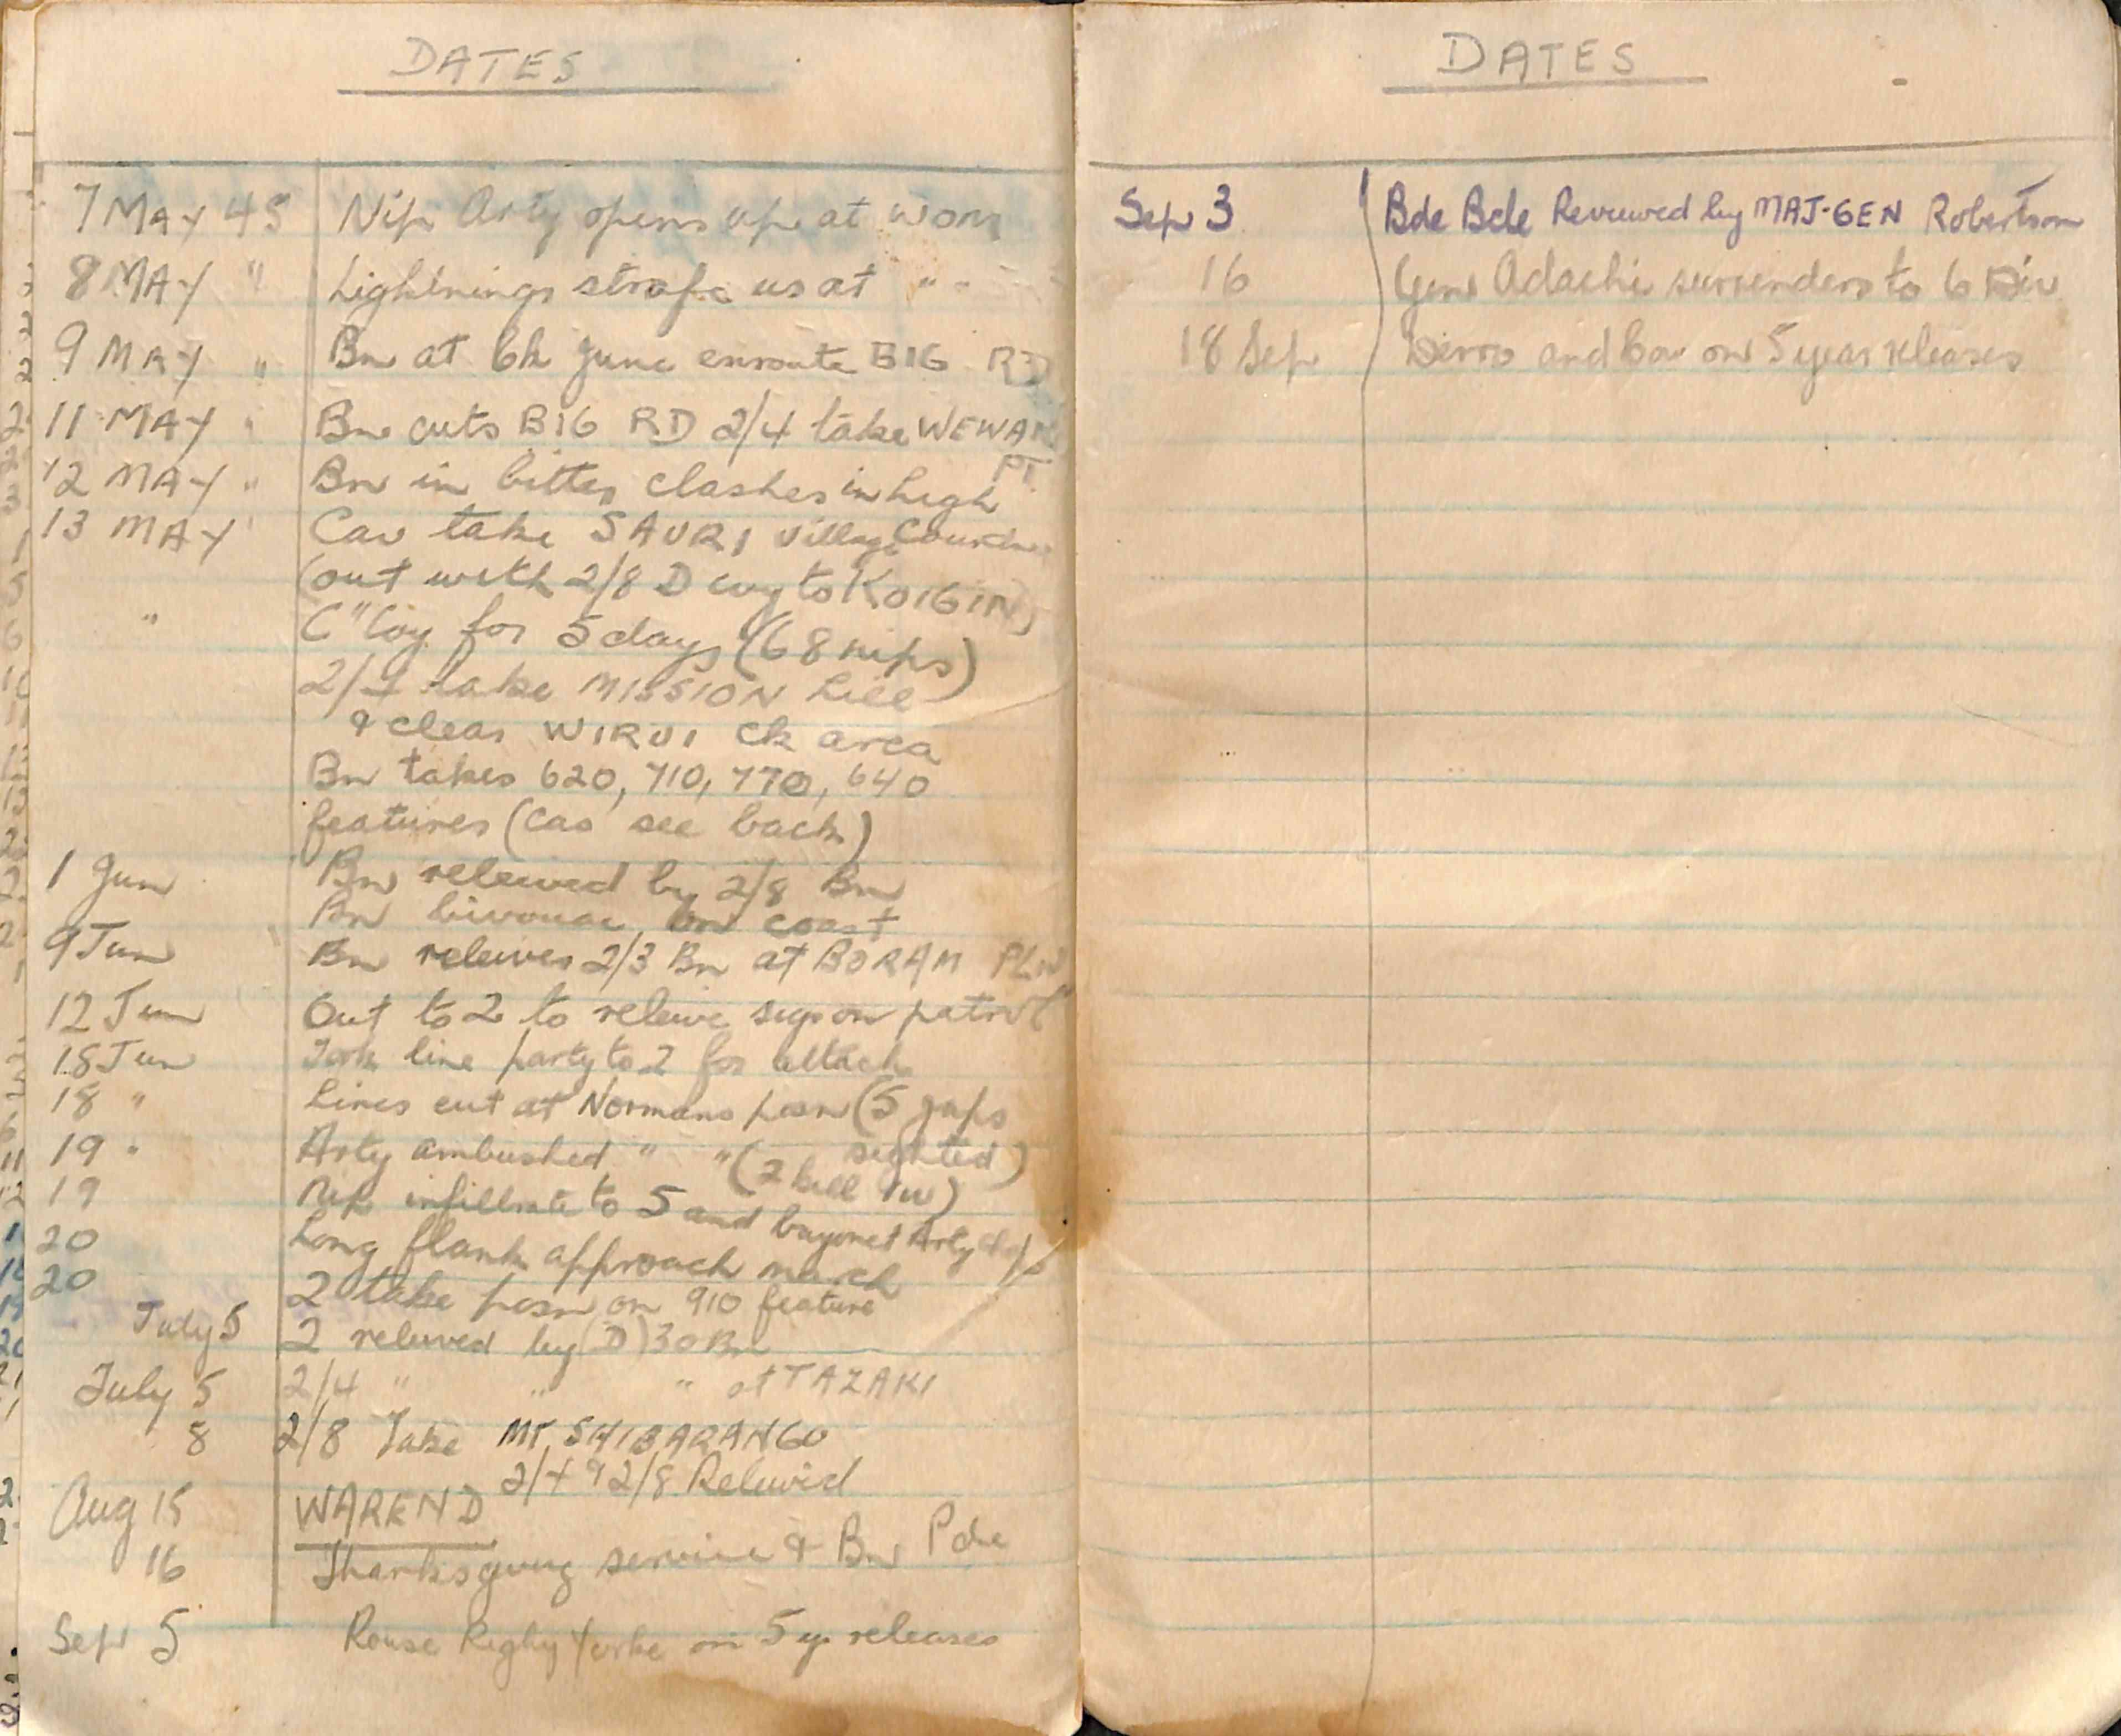 DATES
7 MAY 45 Nip Arty opens up at WOM
8 MAY " Lightnings strafe us at " "
9 MAY " Bn at ck junc enroute BIG RD
11 MAY " Bn cuts BIG RD 2/4 take WEWAK PT
12 MAY " Bn in bitter clashes in high
13 MAY " Cav take SAURI village
(out with 2/8 D coy to KOIGIN)
" C" Coy for 5 days (68 nips)
2/4 take MISSION hill
& clear WIRUI ck area
Bn takes 620, 710, 770, 640
features (cas see back)
1 Jun Bn releived by 2/8 Bn
Bn bivouac on coast
9 Jun Bn releives 2/3 Bn at BORAM PLN
12 Jun Out to 2 to releive sigs on patrol
18 Jun Took line party to 2 for attack
18 " Lines cut at Normans posn (5 japs
sighted)
19 " Arty ambushed " " (2 kill 1w)
19 Nip infiltrate to 5 and bayonet Arty
20 Long flank approach march
20 2 take posn on 910 feature
July 5 2 releived by (D) 30 Bn
July 5 2/4 " " " at TAZAKI
8 2/8 Take MT SHIBARANGO
2/4 & 2/8 Releived
Aug 15 WAR END
16 Thanksgiving service & Bn Pde
Sep 5 Rouse Rigby Yorke on 5 yr releases
DATES
Sep 3 Bde Bde Reveiwed by MAJ-GEN Robertson
16 Gen Adachi surrenders to 6 Div
18 Sep and on 5 year releases